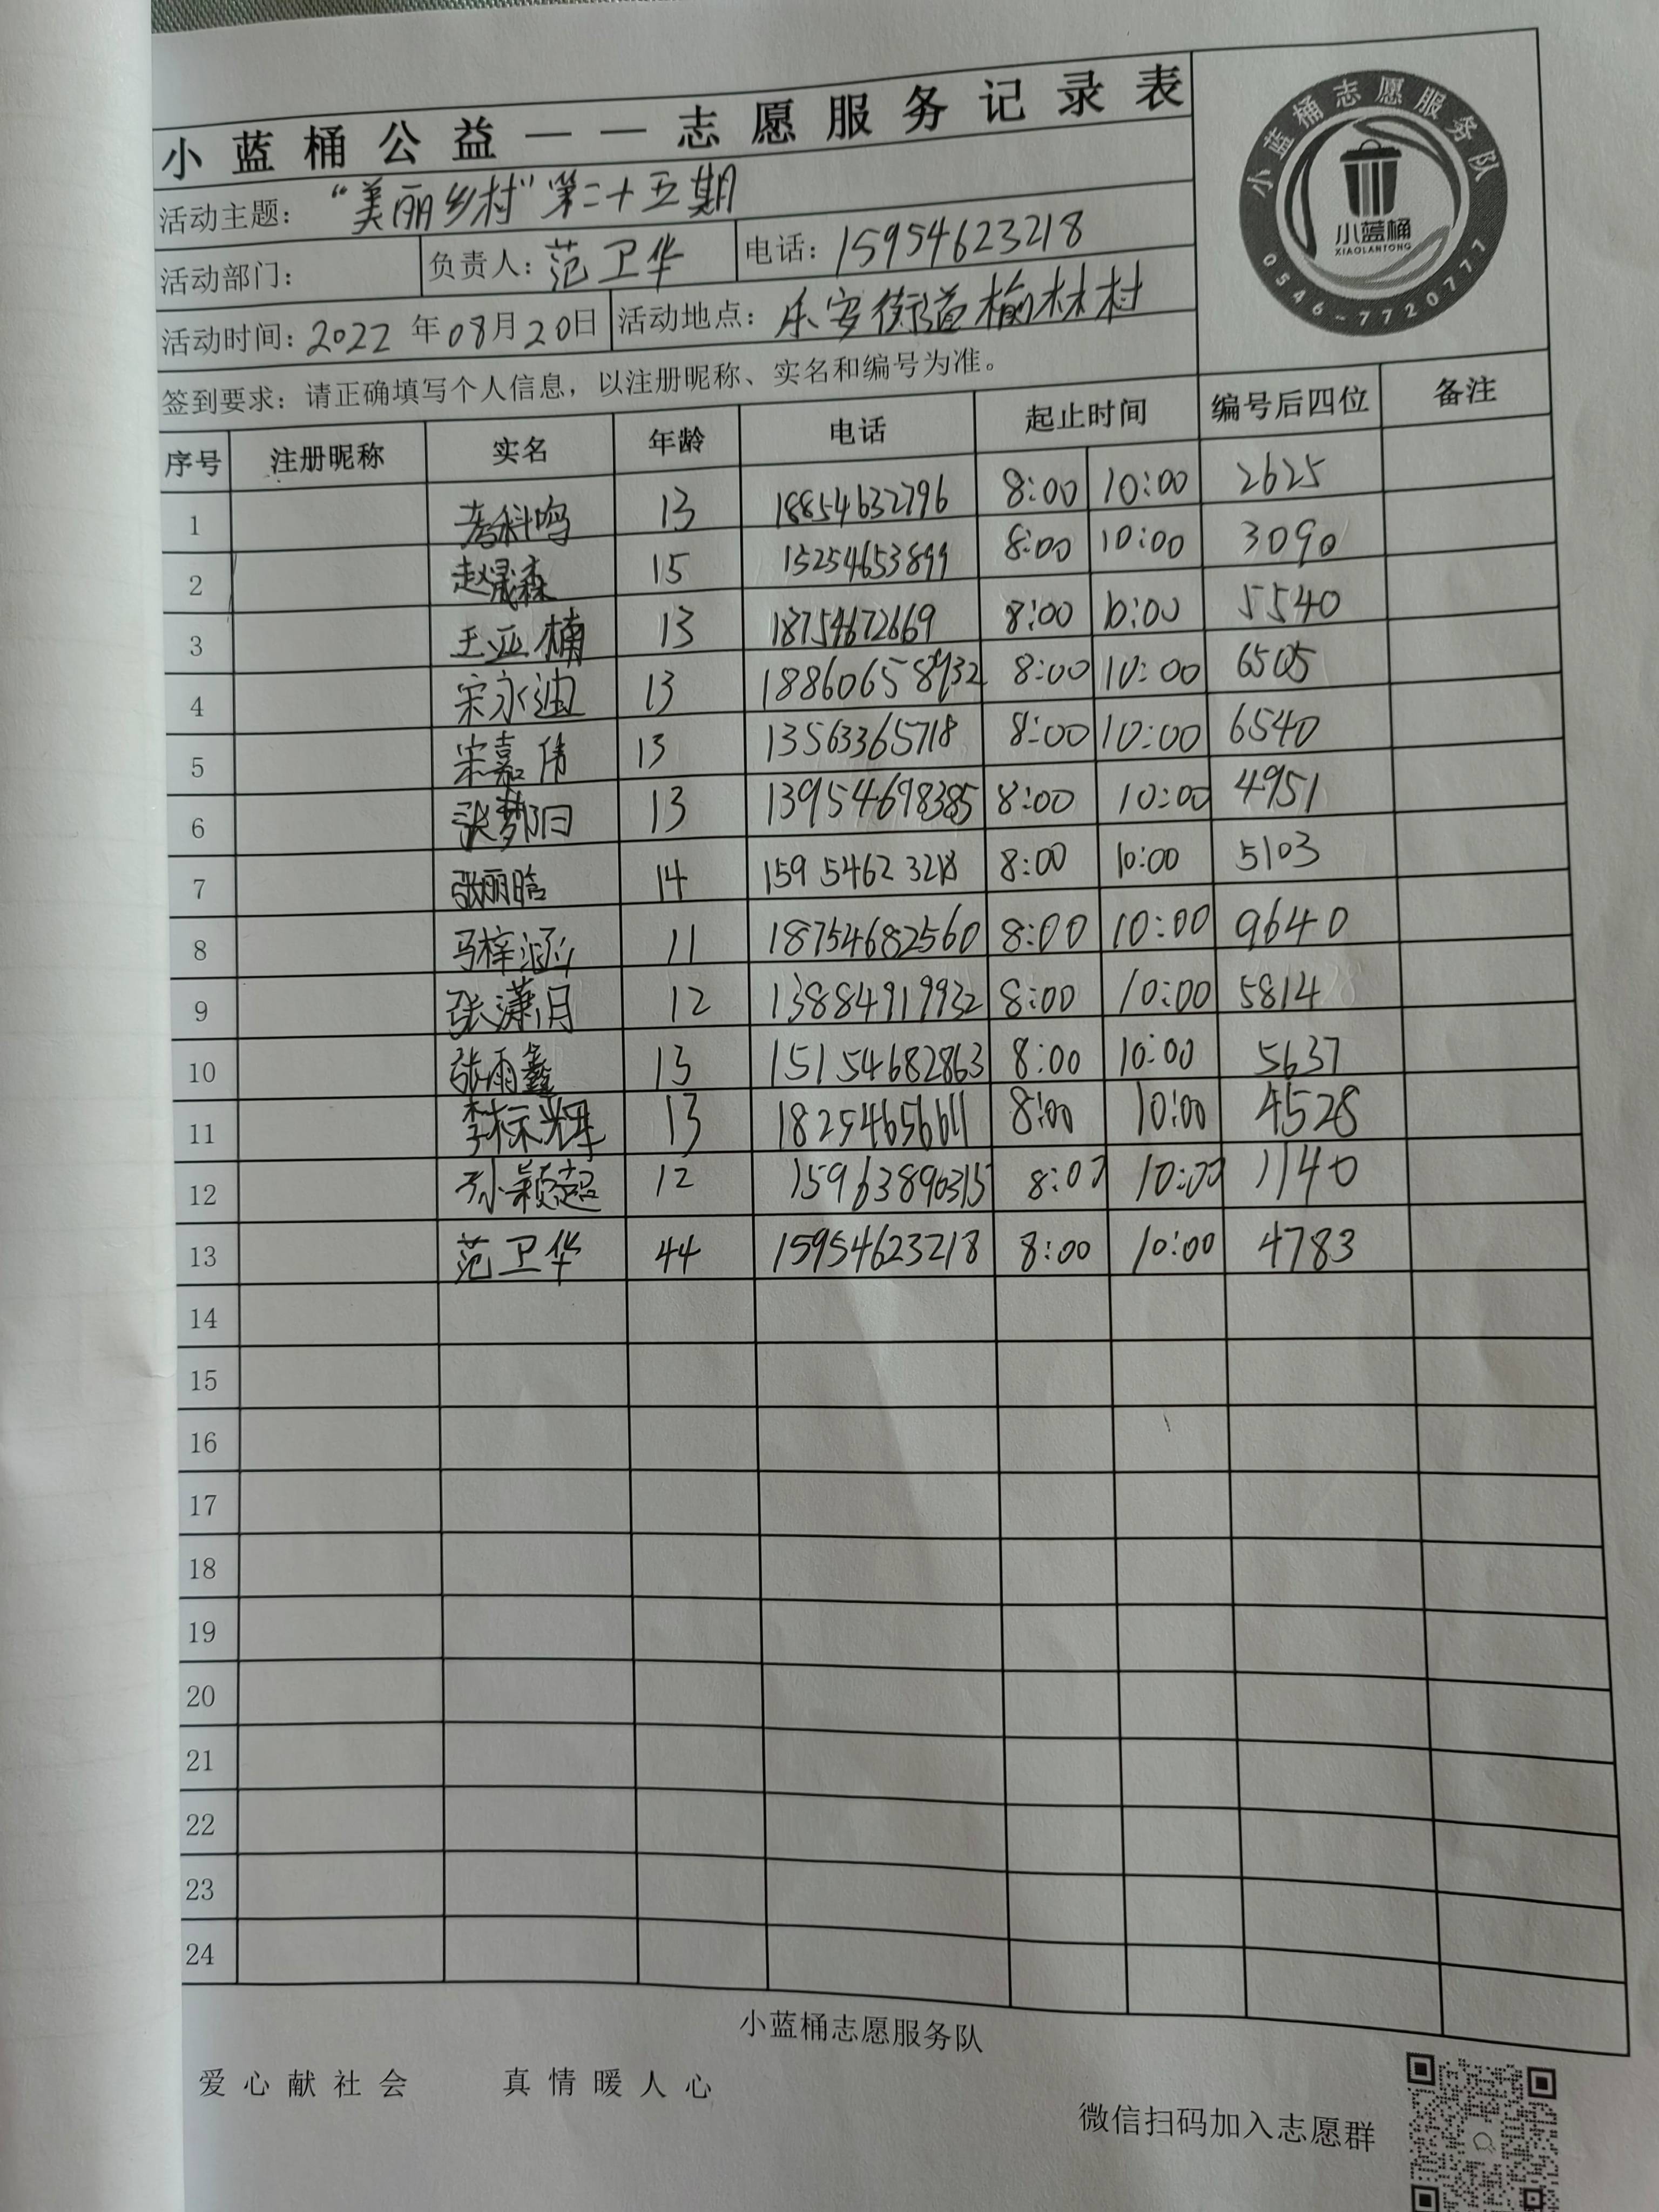 小蓝桶公益——志愿服务记录表
小蓝桶志愿服务队
小蓝桶
XIAOLANTONG
0546-7720777
活动主题： “美丽乡村”第二十五期
活动部门： 负责人：范卫华 电话：15954623218
活动时间：2022年08月20日 活动地点：乐安街道榆林村
签到要求：请正确填写个人信息，以注册昵称、实名和编号为准。
序号 注册昵称 实名 年龄 电话 起止时间 编号后四位 备注
1 科鸣 13 18854632796 8:00 10:00 2625
2 赵晟森 15 15254653899 8:00 10:00 3090
3 王亚楠 13 18754672669 8:00 10:00 5540
4 宋永迪 13 8:00 10:00 6505
5 宋嘉伟 13 13563365718 8:00 10:00 6540
6 张梦阳 13 8:00 10:00 4951
7 张丽晗 14 159 5462 3218 8:00 10:00 5103
8 马梓涵 11 18754682560 8:00 10:00 9640
9 张潇月 12 13884919932 8:00 10:00 5814
10 张雨鑫 13 15154682863 8:00 10:00 5637
11 李标辉 13 18254656611 8:00 10:00 4528
12 孙颖超 12 15963890315 8:00 10:00 1140
13 范卫华 44 15954623218 8:00 10:00 4783
14
15
16
17
18
19
20
21
22
23
24
小蓝桶志愿服务队
爱心献社会 真情暖人心
微信扫码加入志愿群